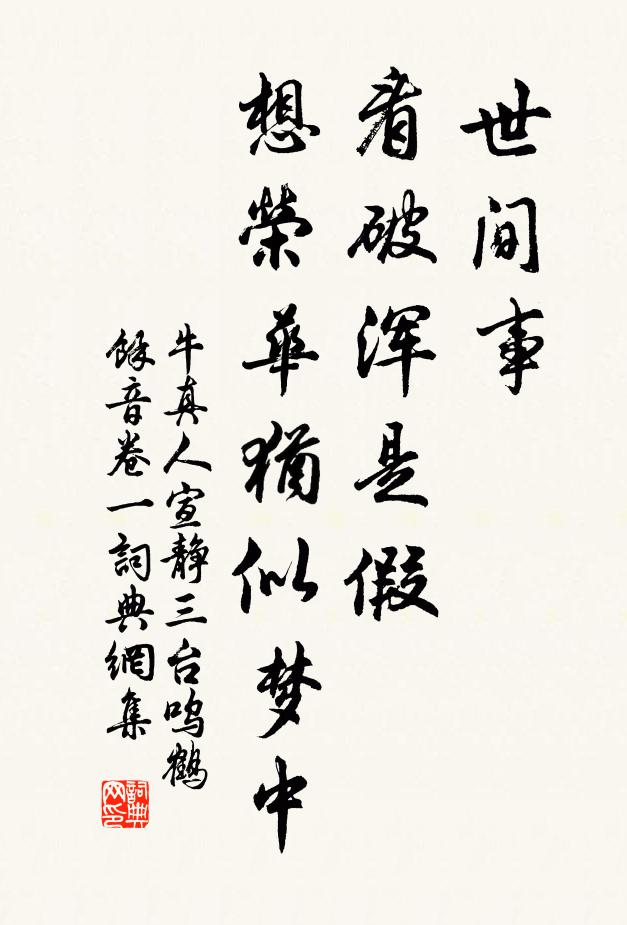 世间事
看破浑是假
想榮華猶似梦中
牛真人宣静三台鸣鶴
餘音卷一詞典網集
詞典网印